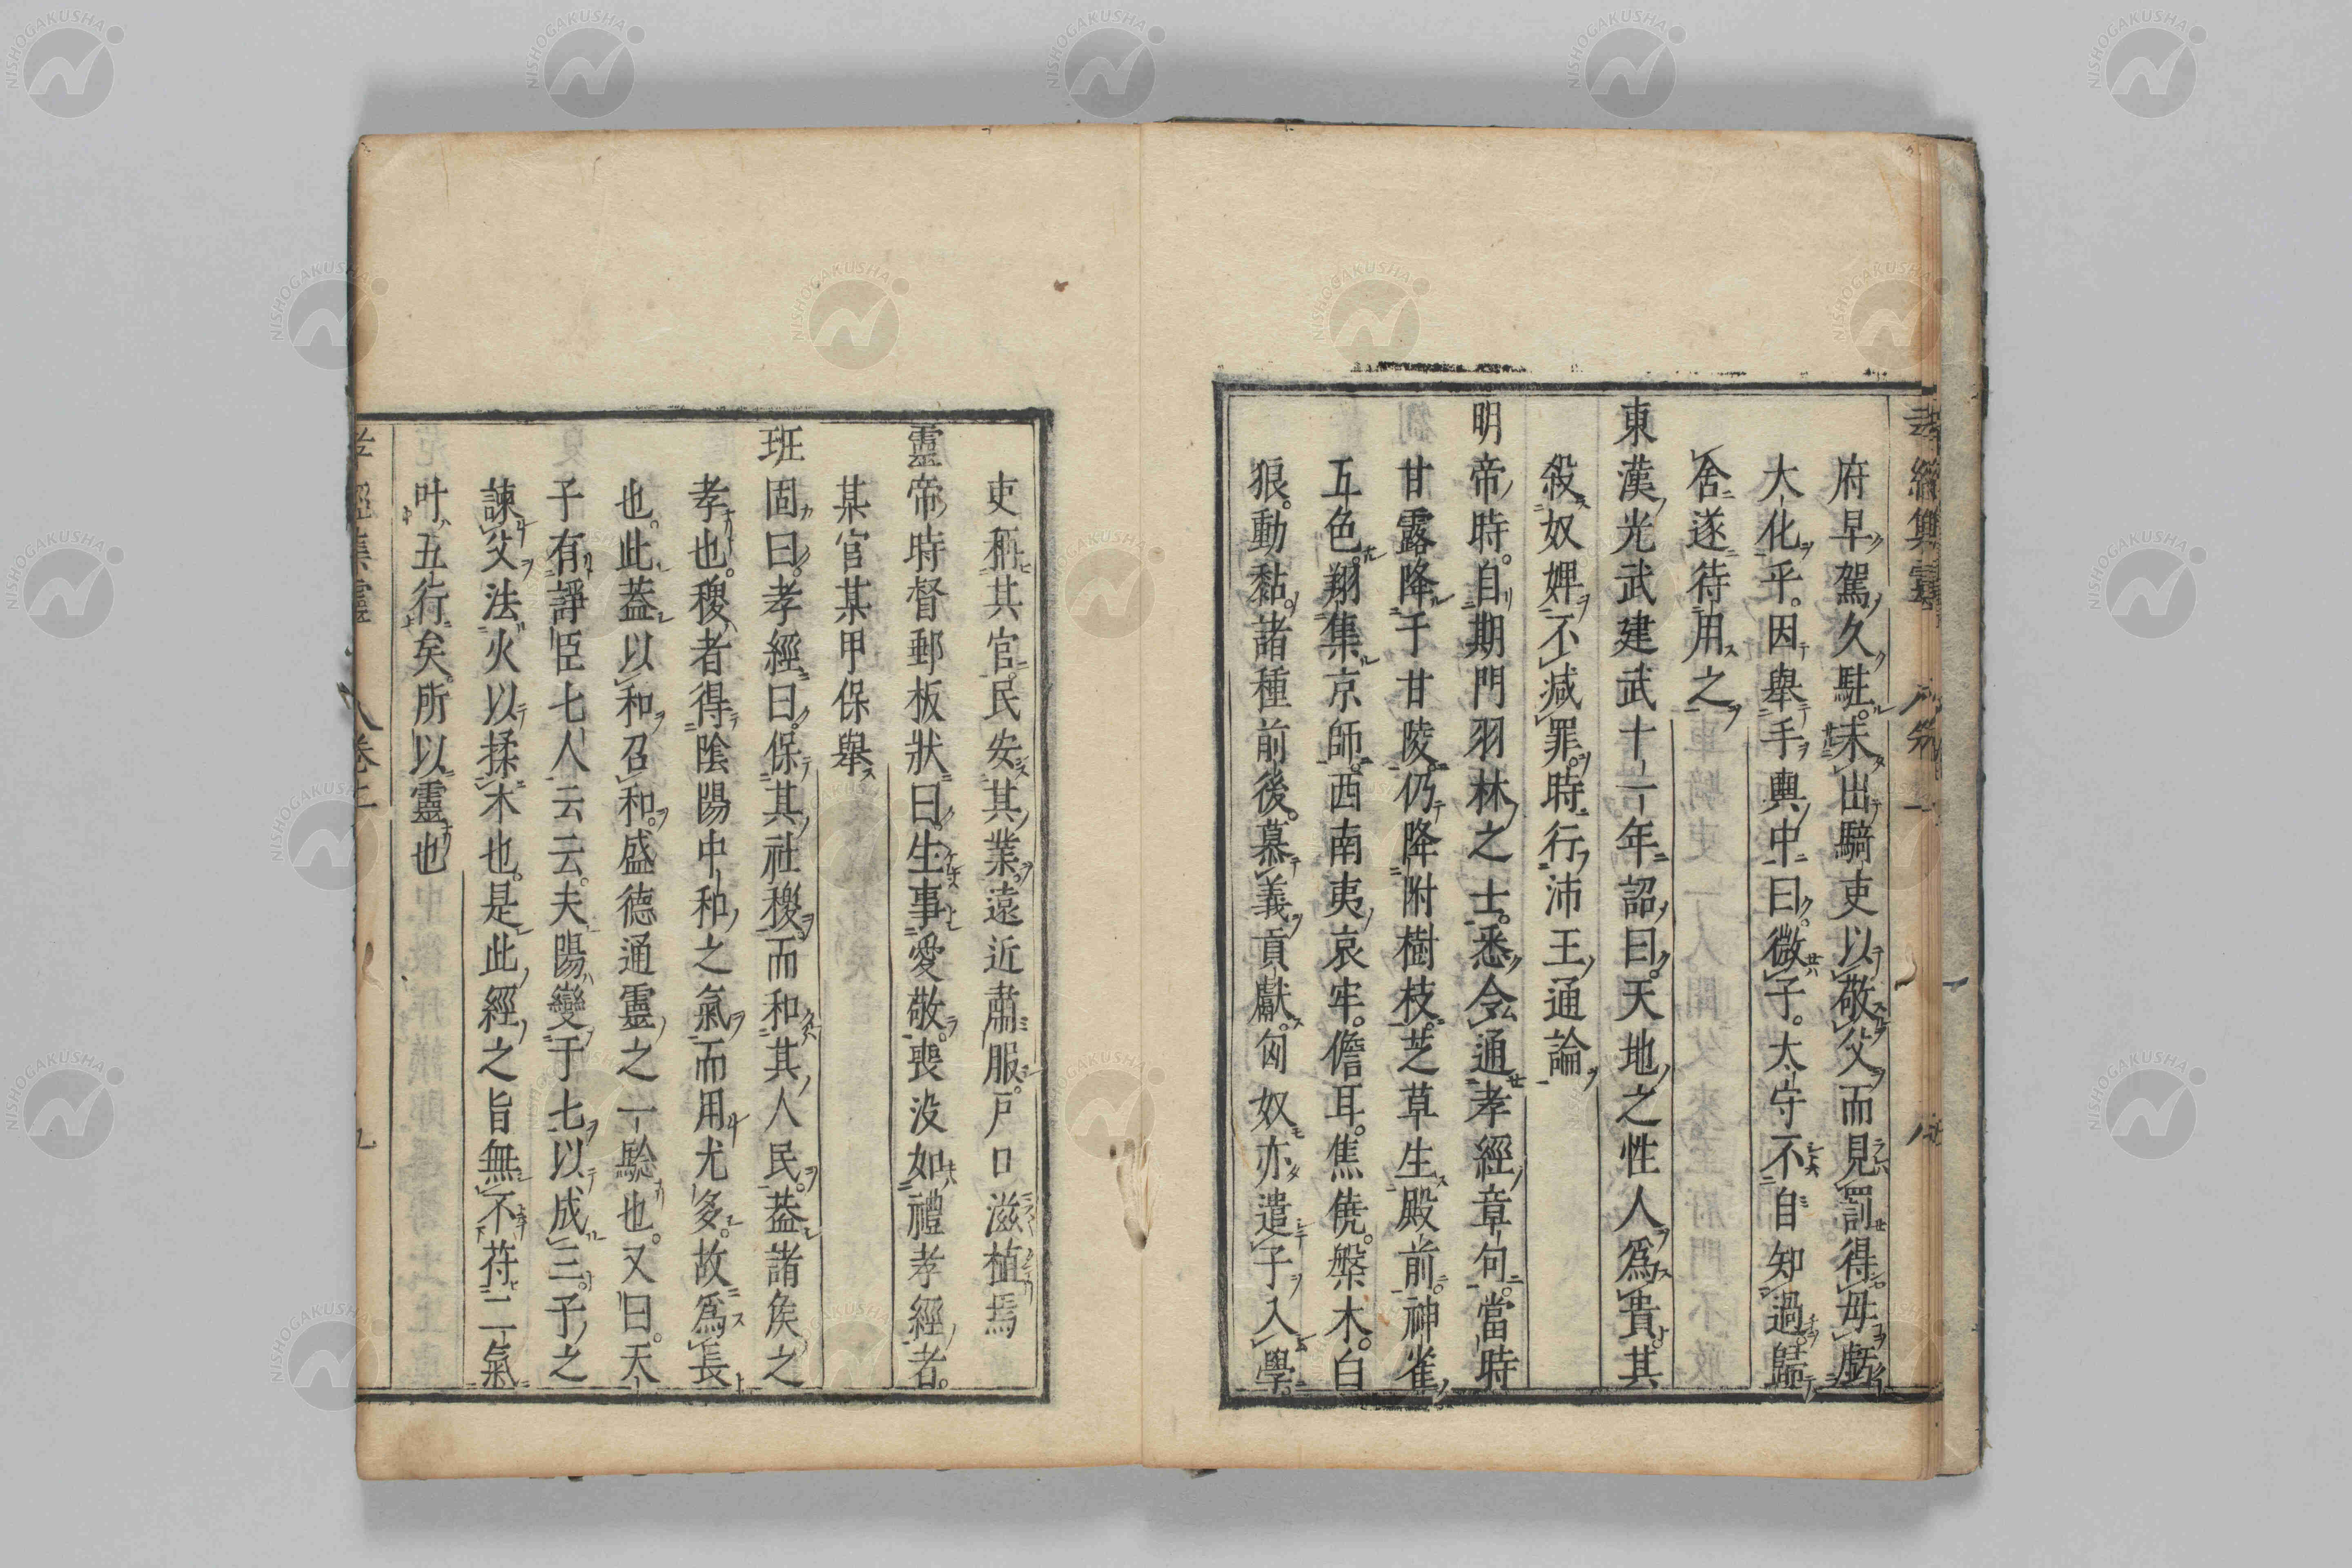 孝經集靈
府早駕久駐未出騎吏以敬父而見罰得毋虧
大化乎因舉手輿中曰微子太守不自知過歸
舍遂待用之
東漢光武建武十一年詔曰天地之性人爲貴其
殺奴婢不減罪時行沛王通論
明帝時自期門羽林之士悉令通孝經章句當時
甘露降于甘陵仍降附樹枝芝草生殿前神雀
五色翔集京師西南夷哀牢儋耳焦僥槃木白
狼動黏諸種前後慕義貢獻匈奴亦遣子入學
吏稱其官民安其業遠近肅服戶口滋植焉
靈帝時督郵板狀曰生事愛敬喪没如禮孝經者
某官某甲保舉
班固曰孝經曰保其社稷而和其人民葢諸矦之
孝也稷者得陰陽中和之氣而用尤多故爲長
也此葢以和召和盛德通靈之一騐也又曰天
子有諍臣七人云云夫陽變于七以成三子之
諫父法火以揉木也是此經之旨無不符二氣
叶五行矣所以靈也
孝經集靈 卷二 九
NISHOGAKUSHA